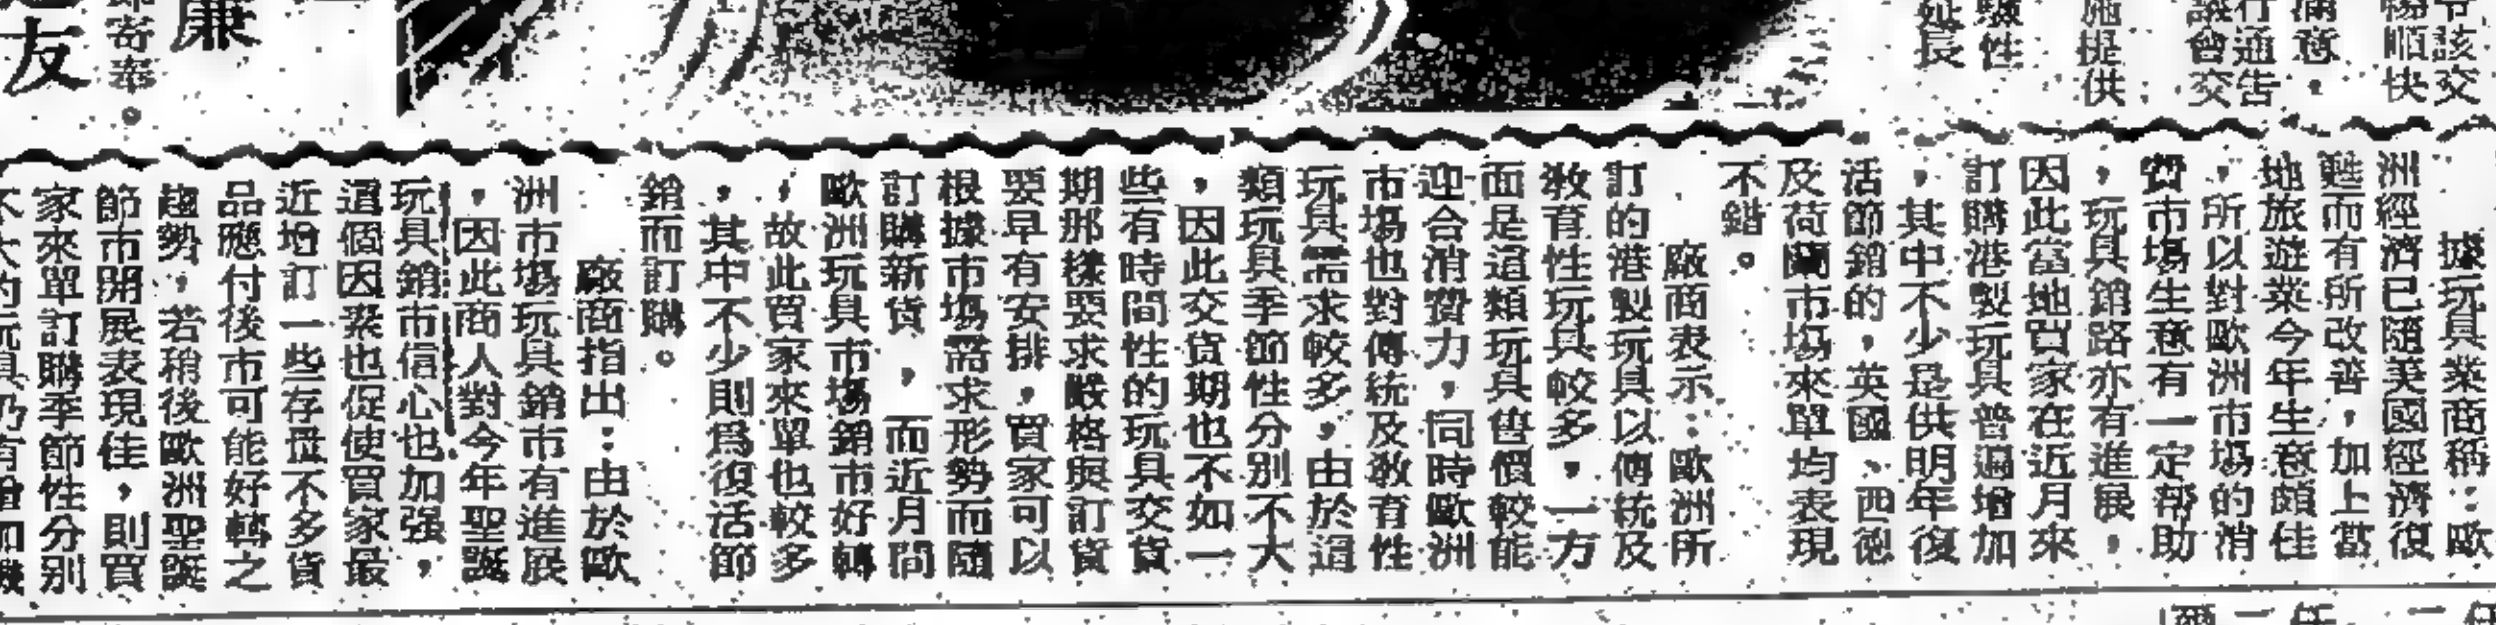 令該交
暢順快
滿意，
行通告
議會交
施提供
驗性
延長
廉
即寄奉。
友
據玩具業商稱：歐
洲經濟已隨美國經濟復
甦而有所改善，加上當
地旅遊業今年生意頗佳
，所以對歐洲市場的消
費市場生意有一定幫助
，玩具銷路亦有進展，
因此當地買家在近月來
訂購港製玩具普遍增加
，其中不少是供明年復
活節銷的，英國、西德
及荷蘭市場來單均表現
不錯。
廠商表示：歐洲所
訂的港製玩具以傳統及
敎育性玩具較多，一方
面是這類玩具售價較能
迎合消費力，同時歐洲
市場也對傳統及敎育性
玩具需求較多，由於這
類玩具季節性分別不大
，因此交貨期也不如一
些有時間性的玩具交貨
期那樣要求嚴格與訂貨
要早有安排，買家可以
根據市場需求形勢而隨
訂購新貨，而近月間
歐洲玩具市場銷市好轉
，故此買家來單也較多
，其中不少則爲復活節
銷而訂購。
廠商指出：由於歐
洲市場玩具銷市有進展
，因此商人對今年聖誕
玩具銷市信心也加强，
這個因素也促使買家最
近增訂一些存量不多貨
品應付後市可能好轉之
趨勢，若稍後歐洲聖誕
節市開展表現佳，則買
家來單訂購季節性分別
不大的玩具仍有增加機